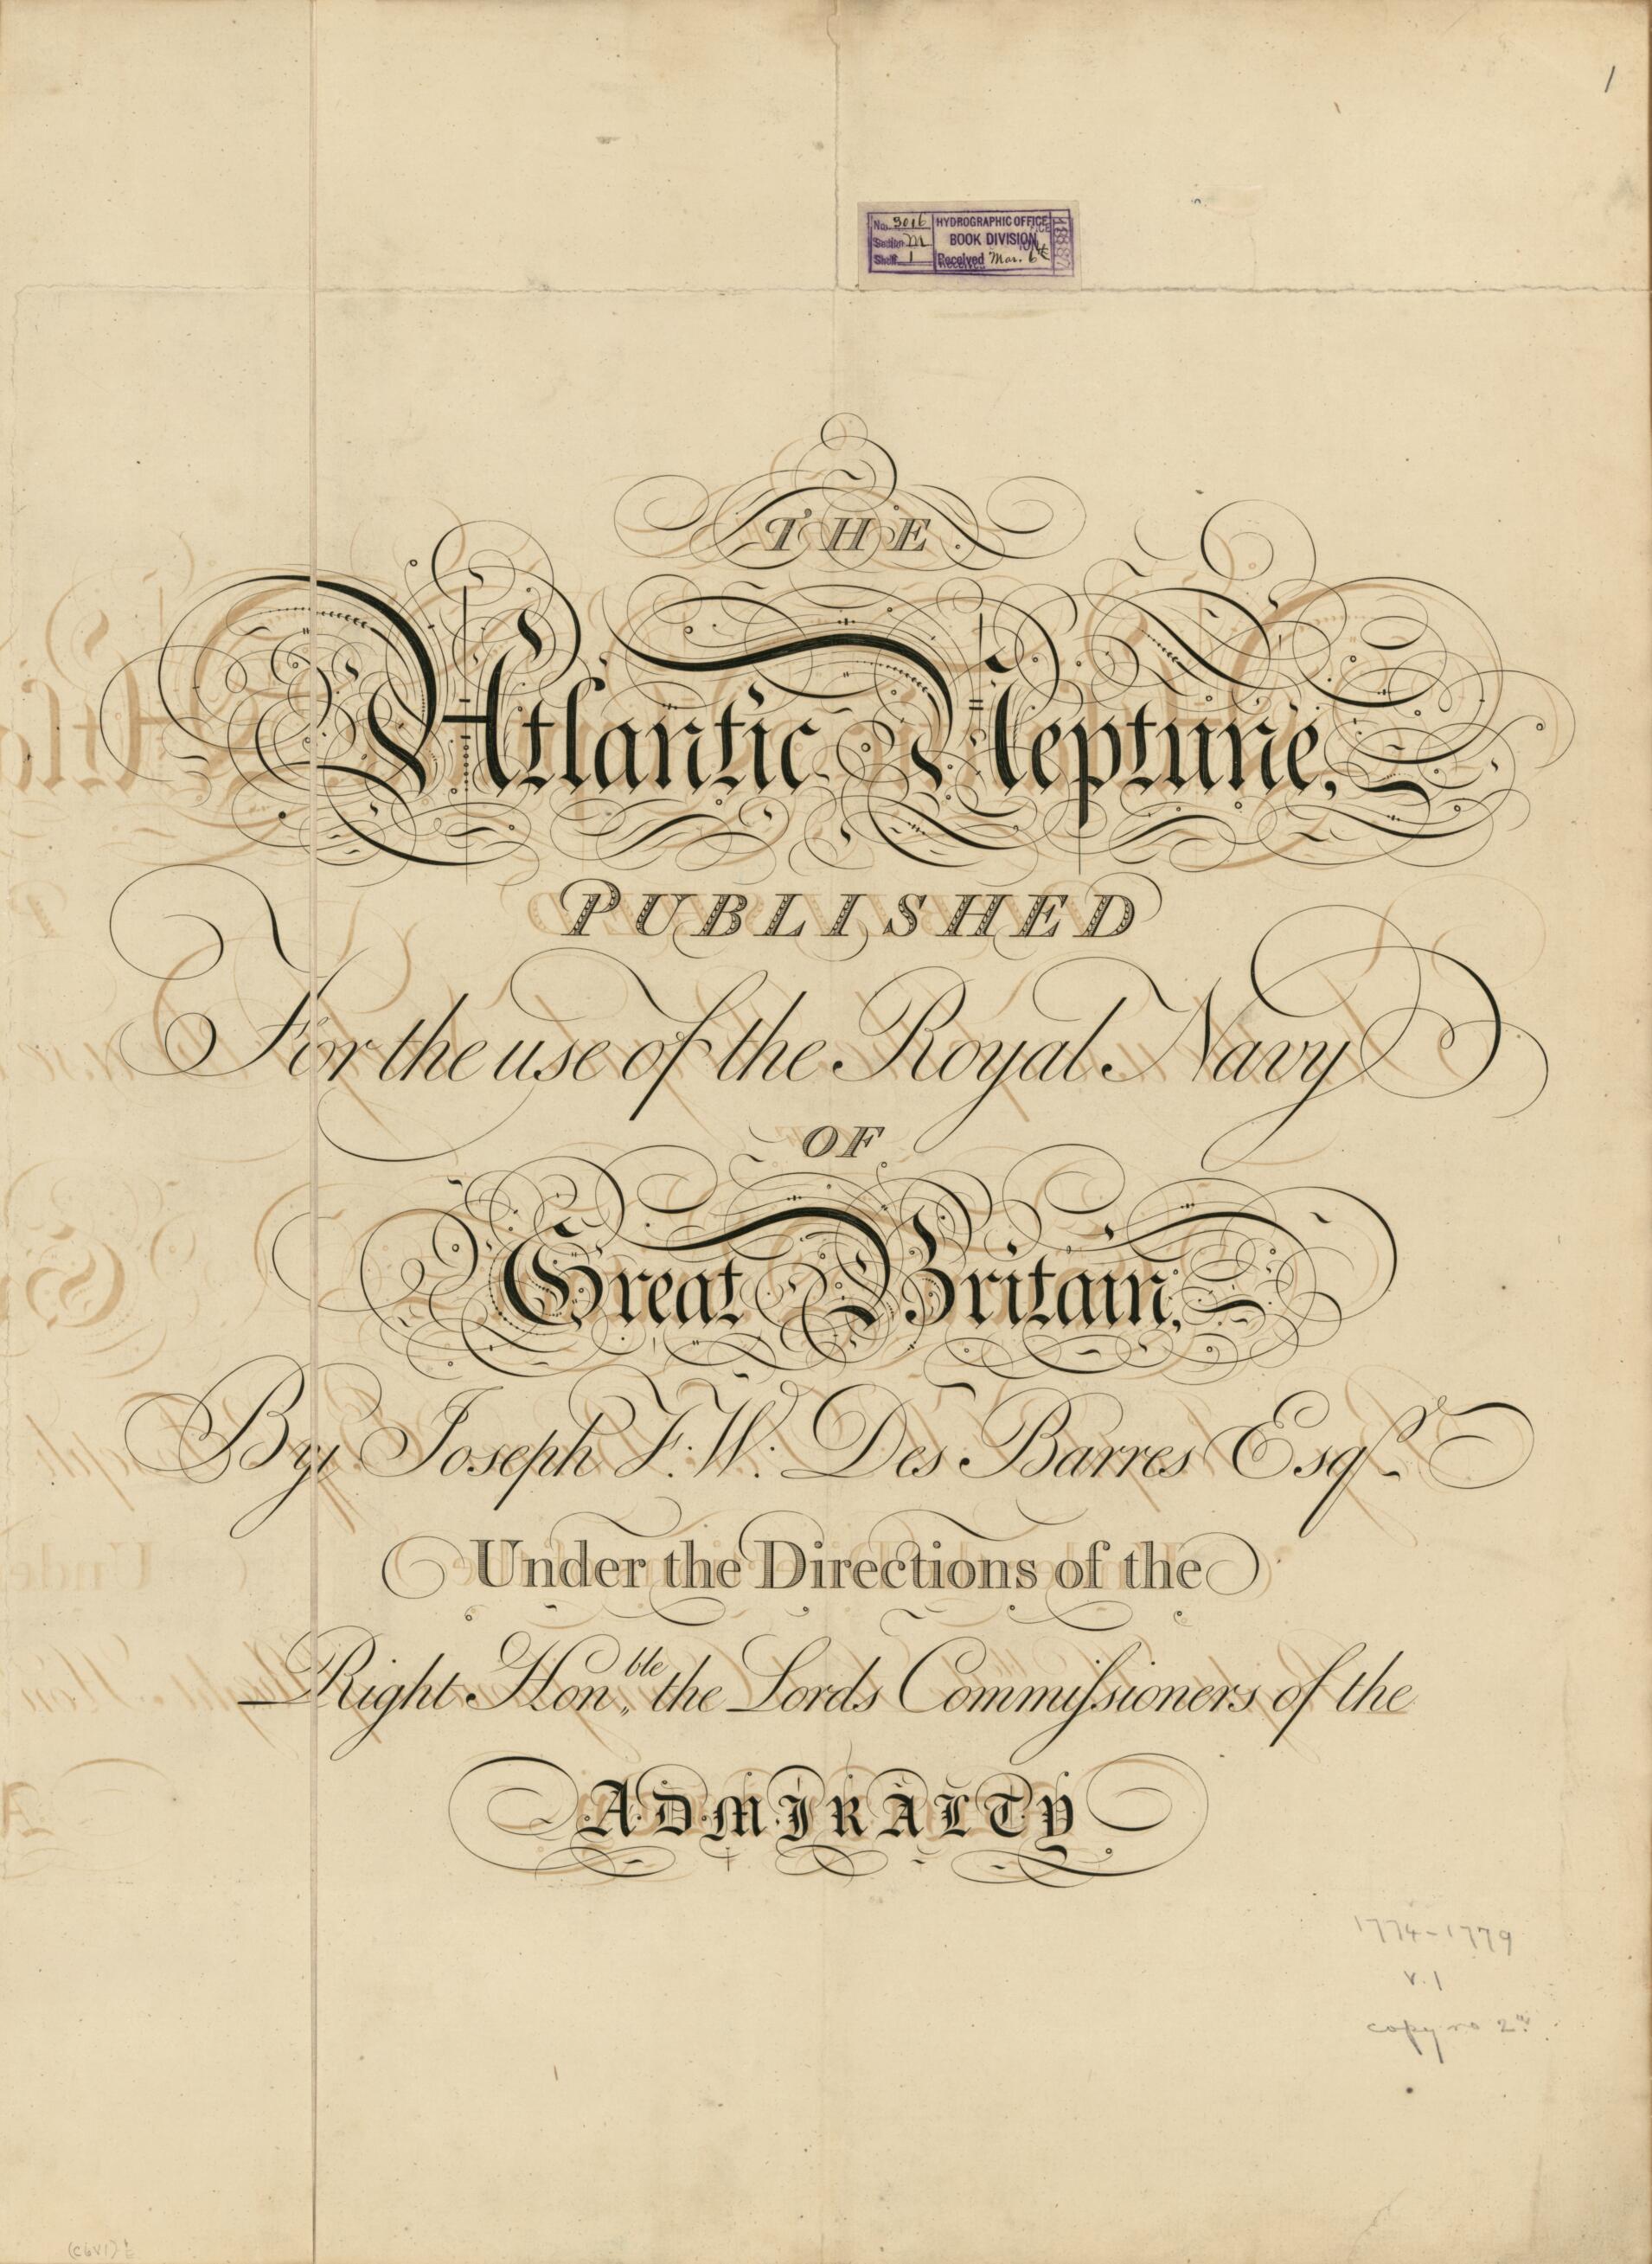 1
No. 3016 HYDROGRAPHIC OFFICE
Section M BOOK DIVISION
Shelf 1 Received Mar. 6
THE
Atlantic Neptune,
PUBLISHED
For the use of the Royal Navy
OF
Great Britain,
By Joseph F. W. Des Barres Esqr.
Under the Directions of the
Right Honble. the Lords Commiſsioners of the
ADMIRALTY
1774-1779
v. 1
copy no 2